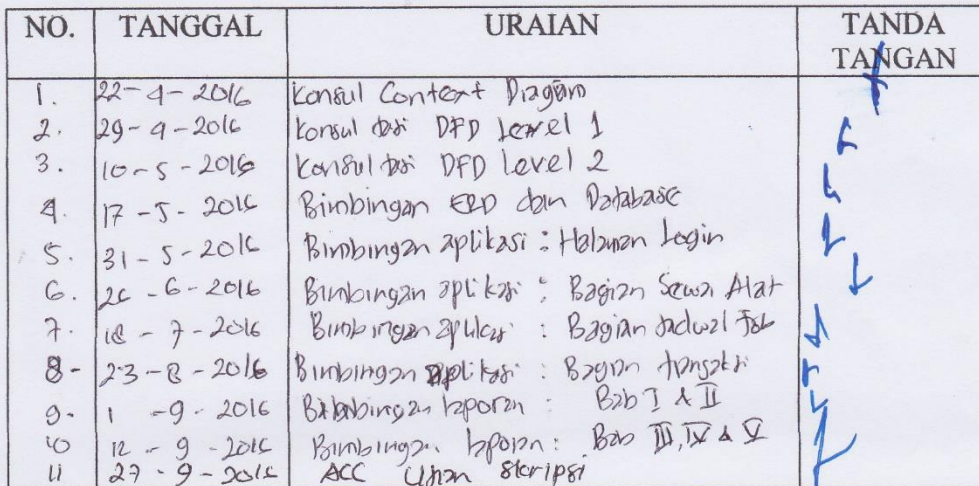 NO. TANGGAL URAIAN TANDA TANGAN
1. 22-4-2016 Konsul Context Diagram
2. 29-4-2016 Konsultasi DFD Level 1
3. 10-5-2016 Konsultasi DFD Level 2
4. 17-5-2016 Bimbingan ERD dan Database
5. 31-5-2016 Bimbingan aplikasi : Halaman Login
6. 26-6-2016 Bimbingan aplikasi : Bagian Sewa Alat
7. 18-7-2016 Bimbingan aplikasi : Bagian Jadwal Job
8- 23-8-2016 Bimbingan aplikasi : Bagian transaksi
9. 1-9-2016 Bimbingan laporan : Bab I & II
10 12-9-2016 Bimbingan laporan : Bab III, IV & V
11 27-9-2016 ACC Ujian Skripsi